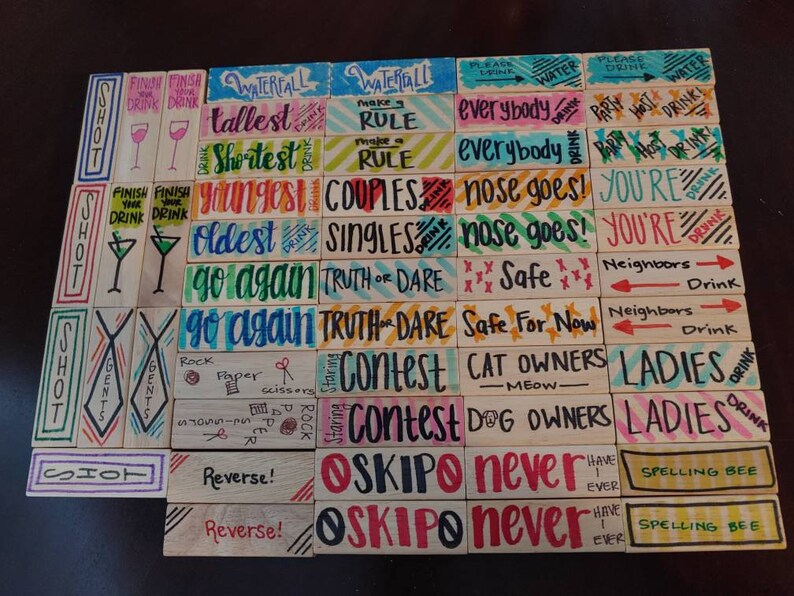 SHOT
FINISH
YOUR
DRINK
FINISH
YOUR
DRINK
SHOT
FINISH
YOUR
DRINK
FINISH
YOUR
DRINK
SHOT
GENTS
GENTS
SHOT
WATERFALL
tallest DRINK
DRINK Shortest DRINK
youngest DRINK
oldest DRINK
go again
go again
ROCK
Paper
scissors
ROCK
PAPER
SCISSORS
Reverse!
Reverse!
WATERFALL
make a
RULE
make a
RULE
COUPLES DRINK
SINGLES DRINK
TRUTH OR DARE
TRUTH OR DARE
staring Contest
staring Contest
SKIP
SKIP
PLEASE
DRINK
WATER
everybody DRINK
everybody DRINK
nose goes!
nose goes!
Safe
Safe For Now
CAT OWNERS
MEOW
DOG OWNERS
never HAVE
I
EVER
never HAVE
I
EVER
PLEASE
DRINK
WATER
PARTY HOST DRINK!
PARTY HOST DRINK!
YOU'RE DRUNK
YOU'RE DRUNK
Neighbors
Drink
Neighbors
Drink
LADIES DRINK
LADIES DRINK
SPELLING BEE
SPELLING BEE